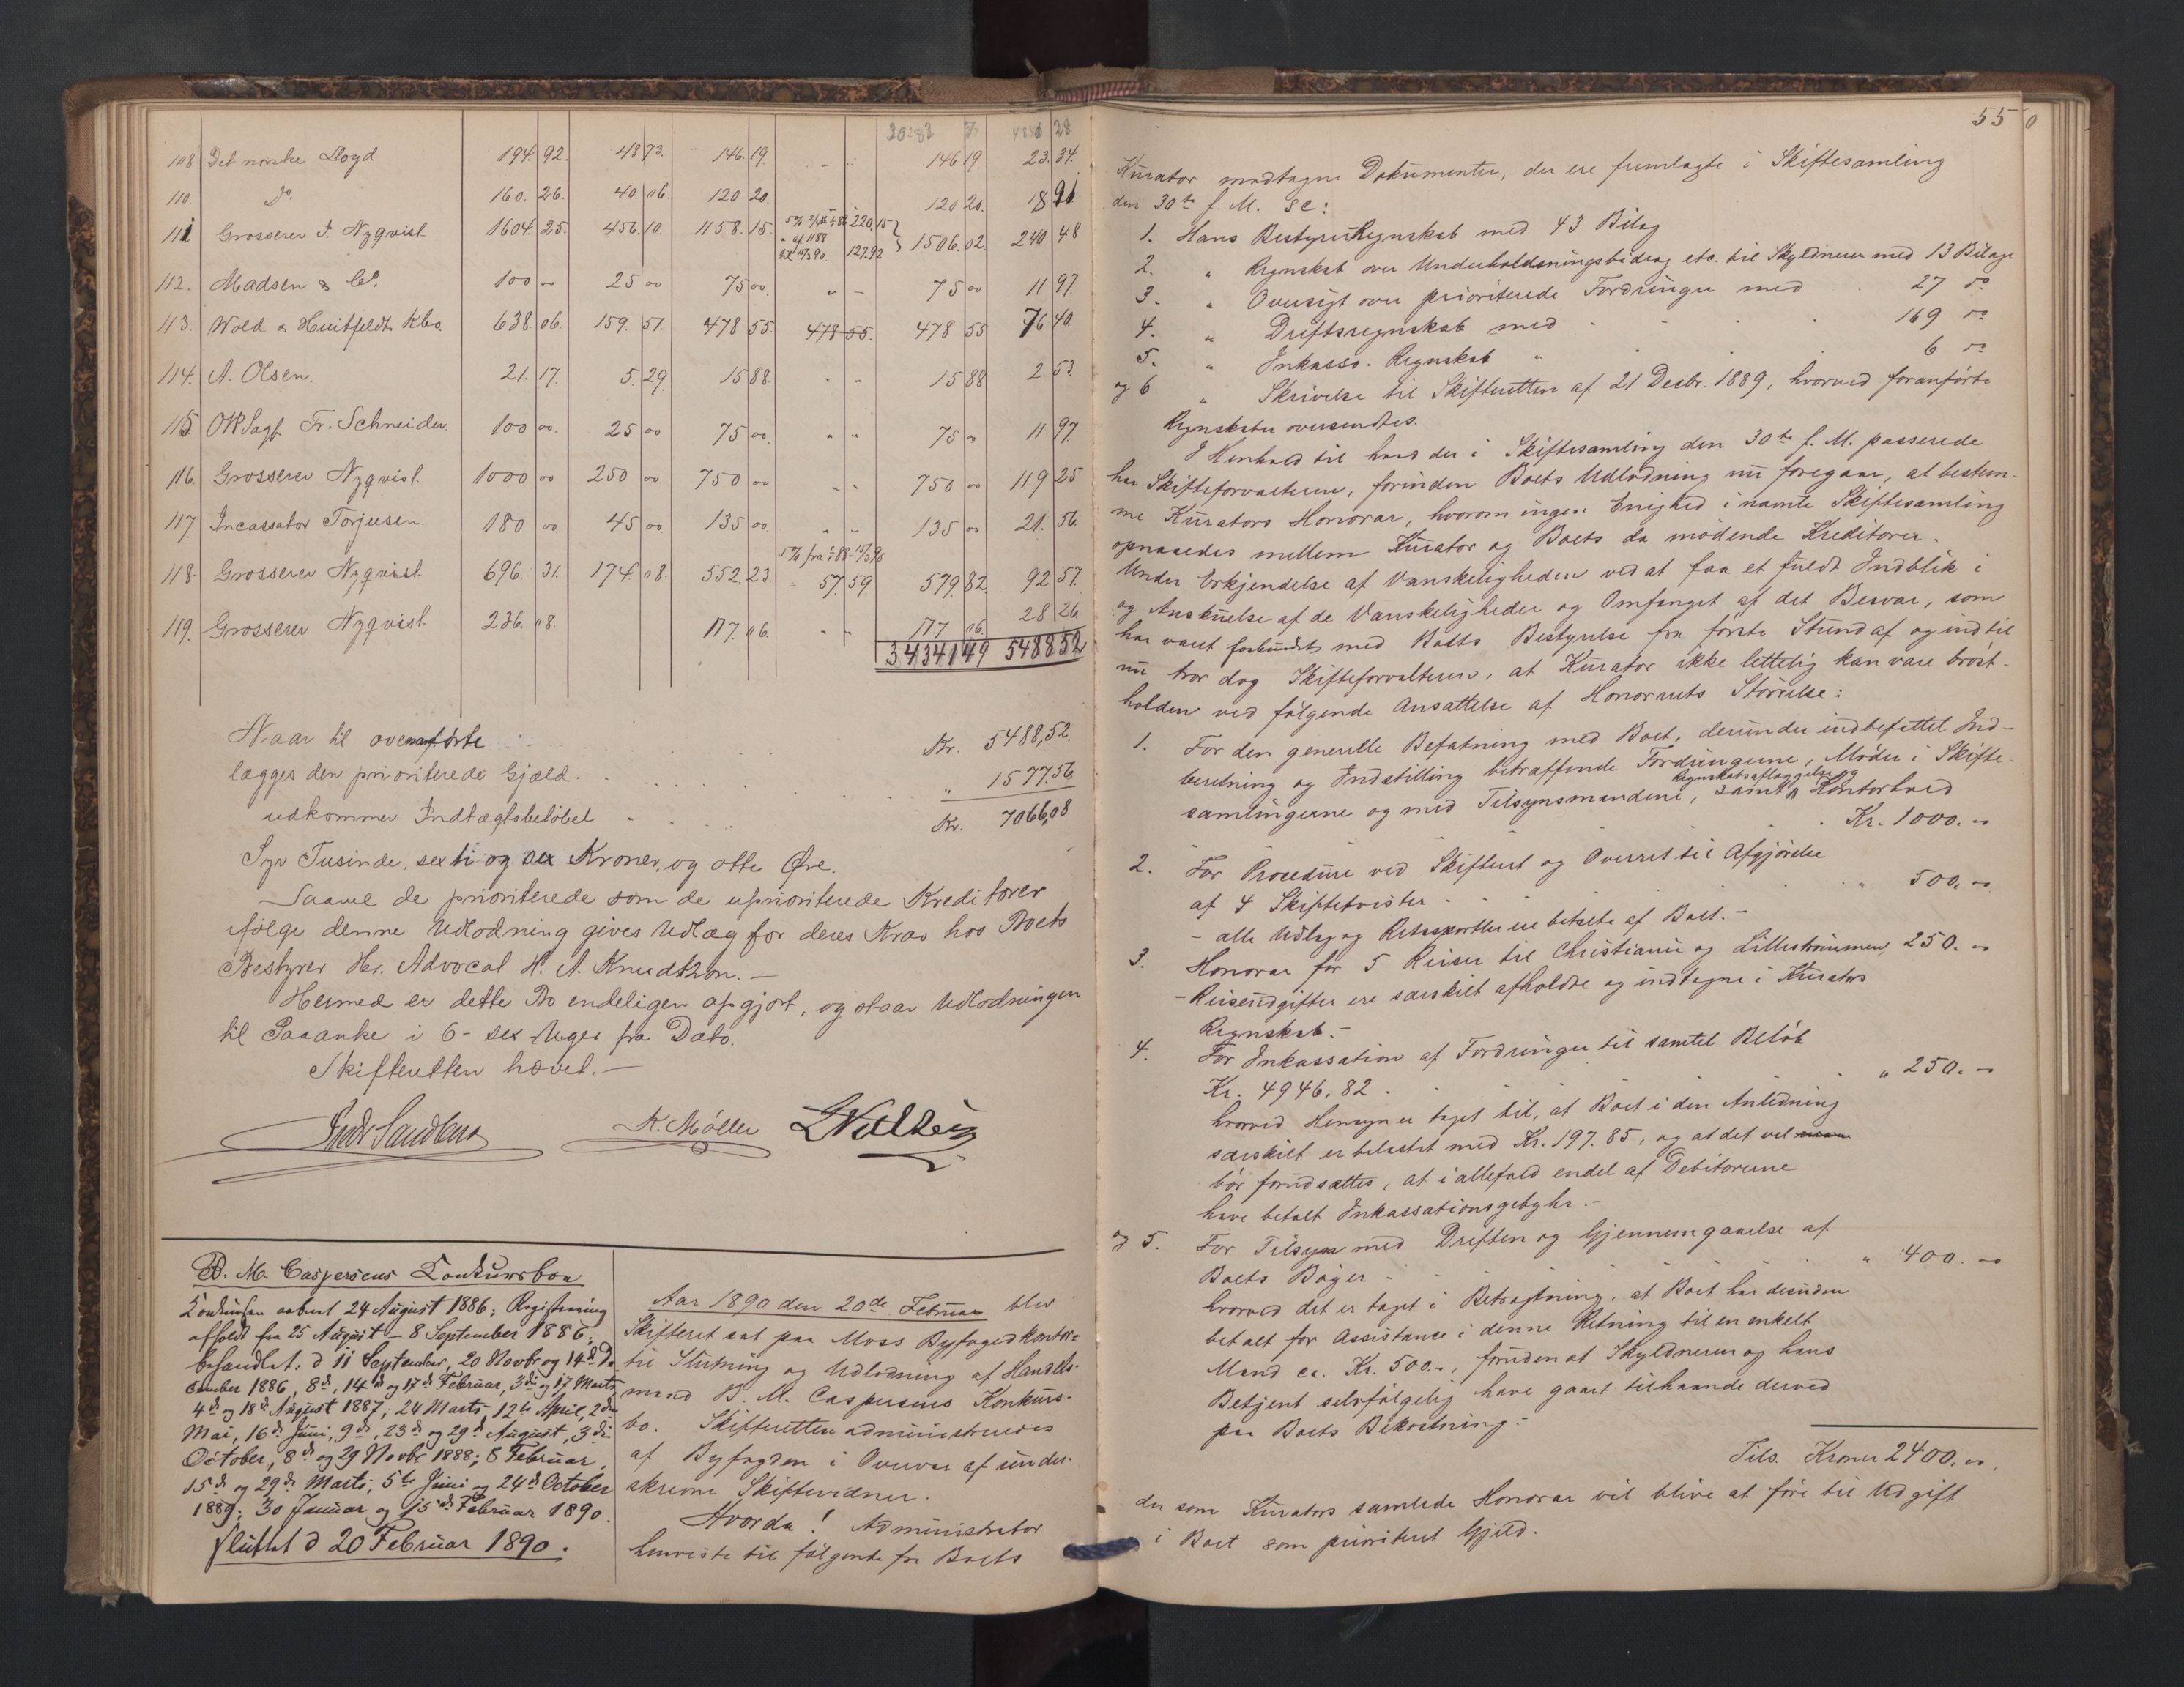 3083 7 4881 28
108 Det norske Lloyd 194. 92. 48 73. 146. 19. - - 146 19. 23. 34.
110. Do 160. 26. 40. 06. 120 20. 120 20. 18 91
111 Grosserer I. Nyqvist 1604. 25. 456. 10. 1158. 15. 220, 15 127.92 1506. 02. 240 48
112. Madsen & Co. 100 - 25 00 75 00. " - 75 00 11 97.
113. Wold & Huitfeldts Kbo. 638. 06. 159. 51. 478 55. 478 55. 478 55 76 40.
114. A. Olsen. 21. 17. 5. 29. 15 88. " - 15 88 2 53.
115. ORSagf. Fr. Schneider. 100 00. 25 00 75 00. " " 75 " 11 97
116. Grosserer Nyqvist. 1000 00 250 00. 750 00 " - 750 00 119 25
117. Incassator Torjusen. 180 00 45 00. 135 00 " - 135 00 21. 56.
5% fra
118. Grosserer Nyqvist. 696. 31. 174 08. 552. 23. - 57. 59. 579. 82. 92 57.
119. Grosserer Nyqvist. 236. 08. 117. 06. " - 117 06. 28 26
34341 49 5488 52
Naar til ovenanførte Kr. 5488,52.
lægges den prioriterede Gjæld. " 1577.56
udkommer Indtægtsbeløbet Kr. 7066,08
Syv Tusinde sexti og sex Kroner og otte Øre.
Saavel de prioriterede som de uprioriterede Kreditorer
ifølge denne Udlodning gives Udlæg for deres Krav hos Boets
Bestyrer Hr. Advocat H. A. Knudtzon. -
Hermed er dette Bo endeligen opgjort, og staar Udlodningen
til Paaanke i 6 - sex Uger fra Dato.
Skifteretten hævet. -
Fredr Sandberg A. Møller
B. M. Caspersens Konkursbo
Konkursen aabnet 24 August 1886; Registrering
afholdt fra 25 August - 8 September 1886;
behandlet: d 11 September, 20 Novbr og 14de De
cember 1886, 8de, 14de og 17de Februar, 3die og 17 Marts
4de og 18de August 1887; 24 Marts, 12te April, 2den
Mai, 16de Juni, 9de, 23de og 29de August, 3die
October, 8de og 29 Novbr 1888; 8 Februar,
15de og 29de Marts, 5te Juni og 24de October
1889; 30 Januar og 15de Februar 1890.
Sluttet d 20 Februar 1890.
Aar 1890 den 20de Februar blev
Skifteret sat paa Moss Byfogedkontor
til Slutning og Udlodning af Handels-
mand B. M. Caspersens Konkurs-
bo. Skifteretten administreredes
af Byfogden i Overvær af under-
skrevne Skiftevidner.
Hvorda! Administrator
henviste til følgende fra Boets
55 0
Kurator modtagne Dokumenter, der ere fremlagte i Skiftesamling
den 30te f. M. sc:
1. Hans Bestyrer Regnskab med 43 Bilag
2. " Regnskab over Underholdningsbidrag etc. til Skyldneren med 13 Bilage
3. " Oversigt over prioriterede Fordringer med 27 do
4. " Driftsregnskab med 169 do
5. " Inkasso. Regnskab " 6 do
og 6 " Skrivelse til Skifteretten af 21 Desbr. 1889, hvorved foranførte
Regnskaber oversendtes.
I Henhold til hvad der i Skiftesamling den 30te f. M. passerede
har Skifteforvalteren, forinden Boets Udlodning nu foregaar, at bestem-
me Kurators Honorar, hvorom ingen Enighed i nævnte Skiftesamling
opnaaedes mellem Kurator og Boets da mødende Kreditorer.
Under Erkjendelse af Vanskeligheden ved at faa et fuldt Indblik i
og Anskuelse af de Vanskeligheder og Omfanget af det Besvær, som
har været forbundet med Boets Bestyrelse fra første Stund af og indtil
nu tror dog Skifteforvalteren, at Kurator ikke lettelig kan være brøst-
holden ved følgende Ansættelse af Honorarets Størrelse:
1. For den generelle Befatning med Boet, derunder indbefattet Ind-
beretning og Indstilling betræffende Fordringerne, Møder i Skifte-
Regnskabsaflæggelse og
samlingerne og med Tilsynsmændene, samt Kontorhold
Kr. 1000. -
2. For Procedure ved Skifteret og Overret til Afgjørelse
af 4 Skiftetvister " 500. -
- alle Udlæg og Retssportler ere betalte af Boet. -
3. Honorar for 5 Reiser til Christiania og Lillestrømmen 250. -
- Reiseudgifter ere særskilt afholdte og indtagne i Kurators
Regnskab. -
4. For Inkassation af Fordringer til samlet Beløb
Kr. 4946,82. " 250. -
hvorved Hensyn er taget til, at Boet i den Anledning
særskilt er belastet med Kr. 197.85, og at det vel
bør forudsættes, at i allefald endel af Debitorerne
have betalt Inkassationsgebyhr. -
og 5. For Tilsyn med Driften og Gjennemgaaelse af
Boets Bøger " 400. -
hvorved det er taget i Betragtning, at Boet har desuden
betalt for Assistance i denne Retning til en enkelt
Mand ca. Kr. 500. -, foruden at Skyldneren og hans
Betjent selvfølgelig have gaaet tilhaande derved
paa Boets Bekostning. -
Tils. Kroner 2400. -
der som Kurators samlede Honorar vil blive at føre til Udgift
i Boet som prioriteret Gjæld.